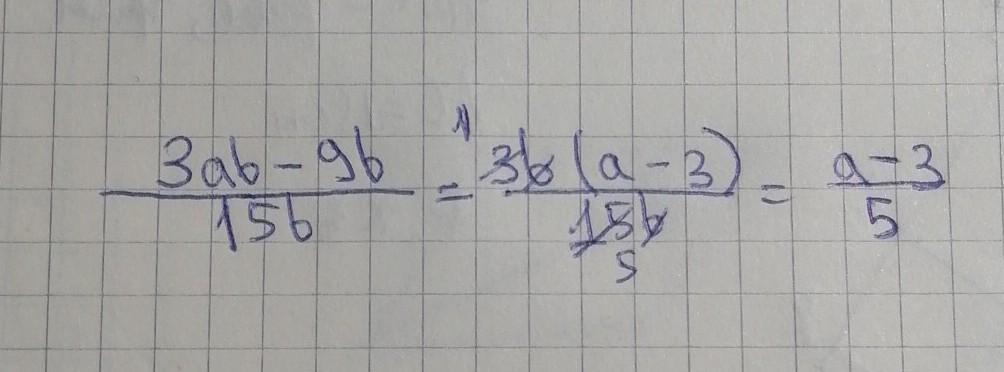 3ab - 9b / 15b = 1 3b (a - 3) / 15b 5 = a - 3 / 5